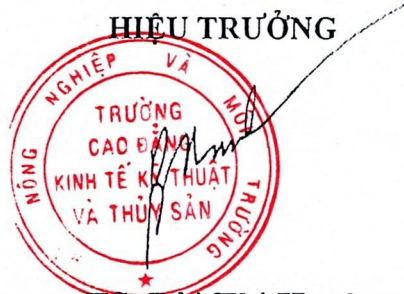 HIỆU TRƯỞNG
NÔNG NGHIỆP VÀ MÔI TRƯỜNG
TRƯỜNG
CAO ĐẲNG
KINH TẾ KỸ THUẬT
VÀ THỦY SẢN